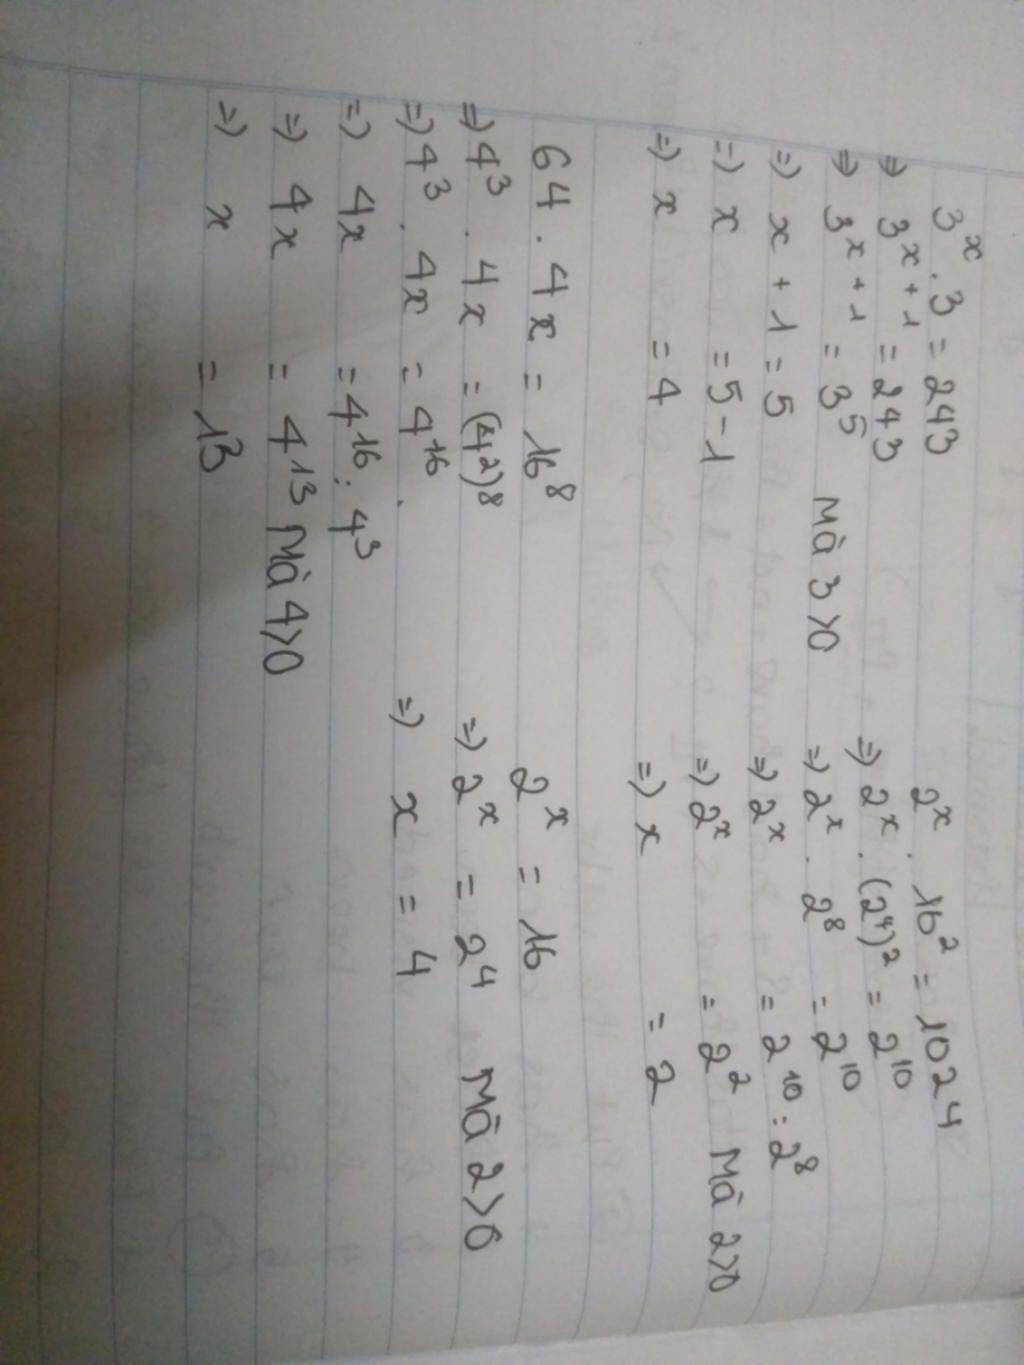 3^x . 3 = 243
⇒ 3^x+1 = 243
⇒ 3^x+1 = 3^5 Mà 3>0
⇒ x + 1 = 5
⇒ x = 5 - 1
⇒ x = 4
2^x . 16^2 = 1024
⇒ 2^x . (2^4)^2 = 2^10
⇒ 2^x . 2^8 = 2^10
⇒ 2^x = 2^10 : 2^8
⇒ 2^x = 2^2 Mà 2>0
⇒ x = 2
64 . 4x = 16^8
⇒ 4^3 . 4x = (4^2)^8
⇒ 4^3 . 4x = 4^16 .
⇒ 4x = 4^16 : 4^3
⇒ 4x = 4^13 Mà 4>0
⇒ x = 13
2^x = 16
⇒ 2^x = 2^4 Mà 2>0
⇒ x = 4